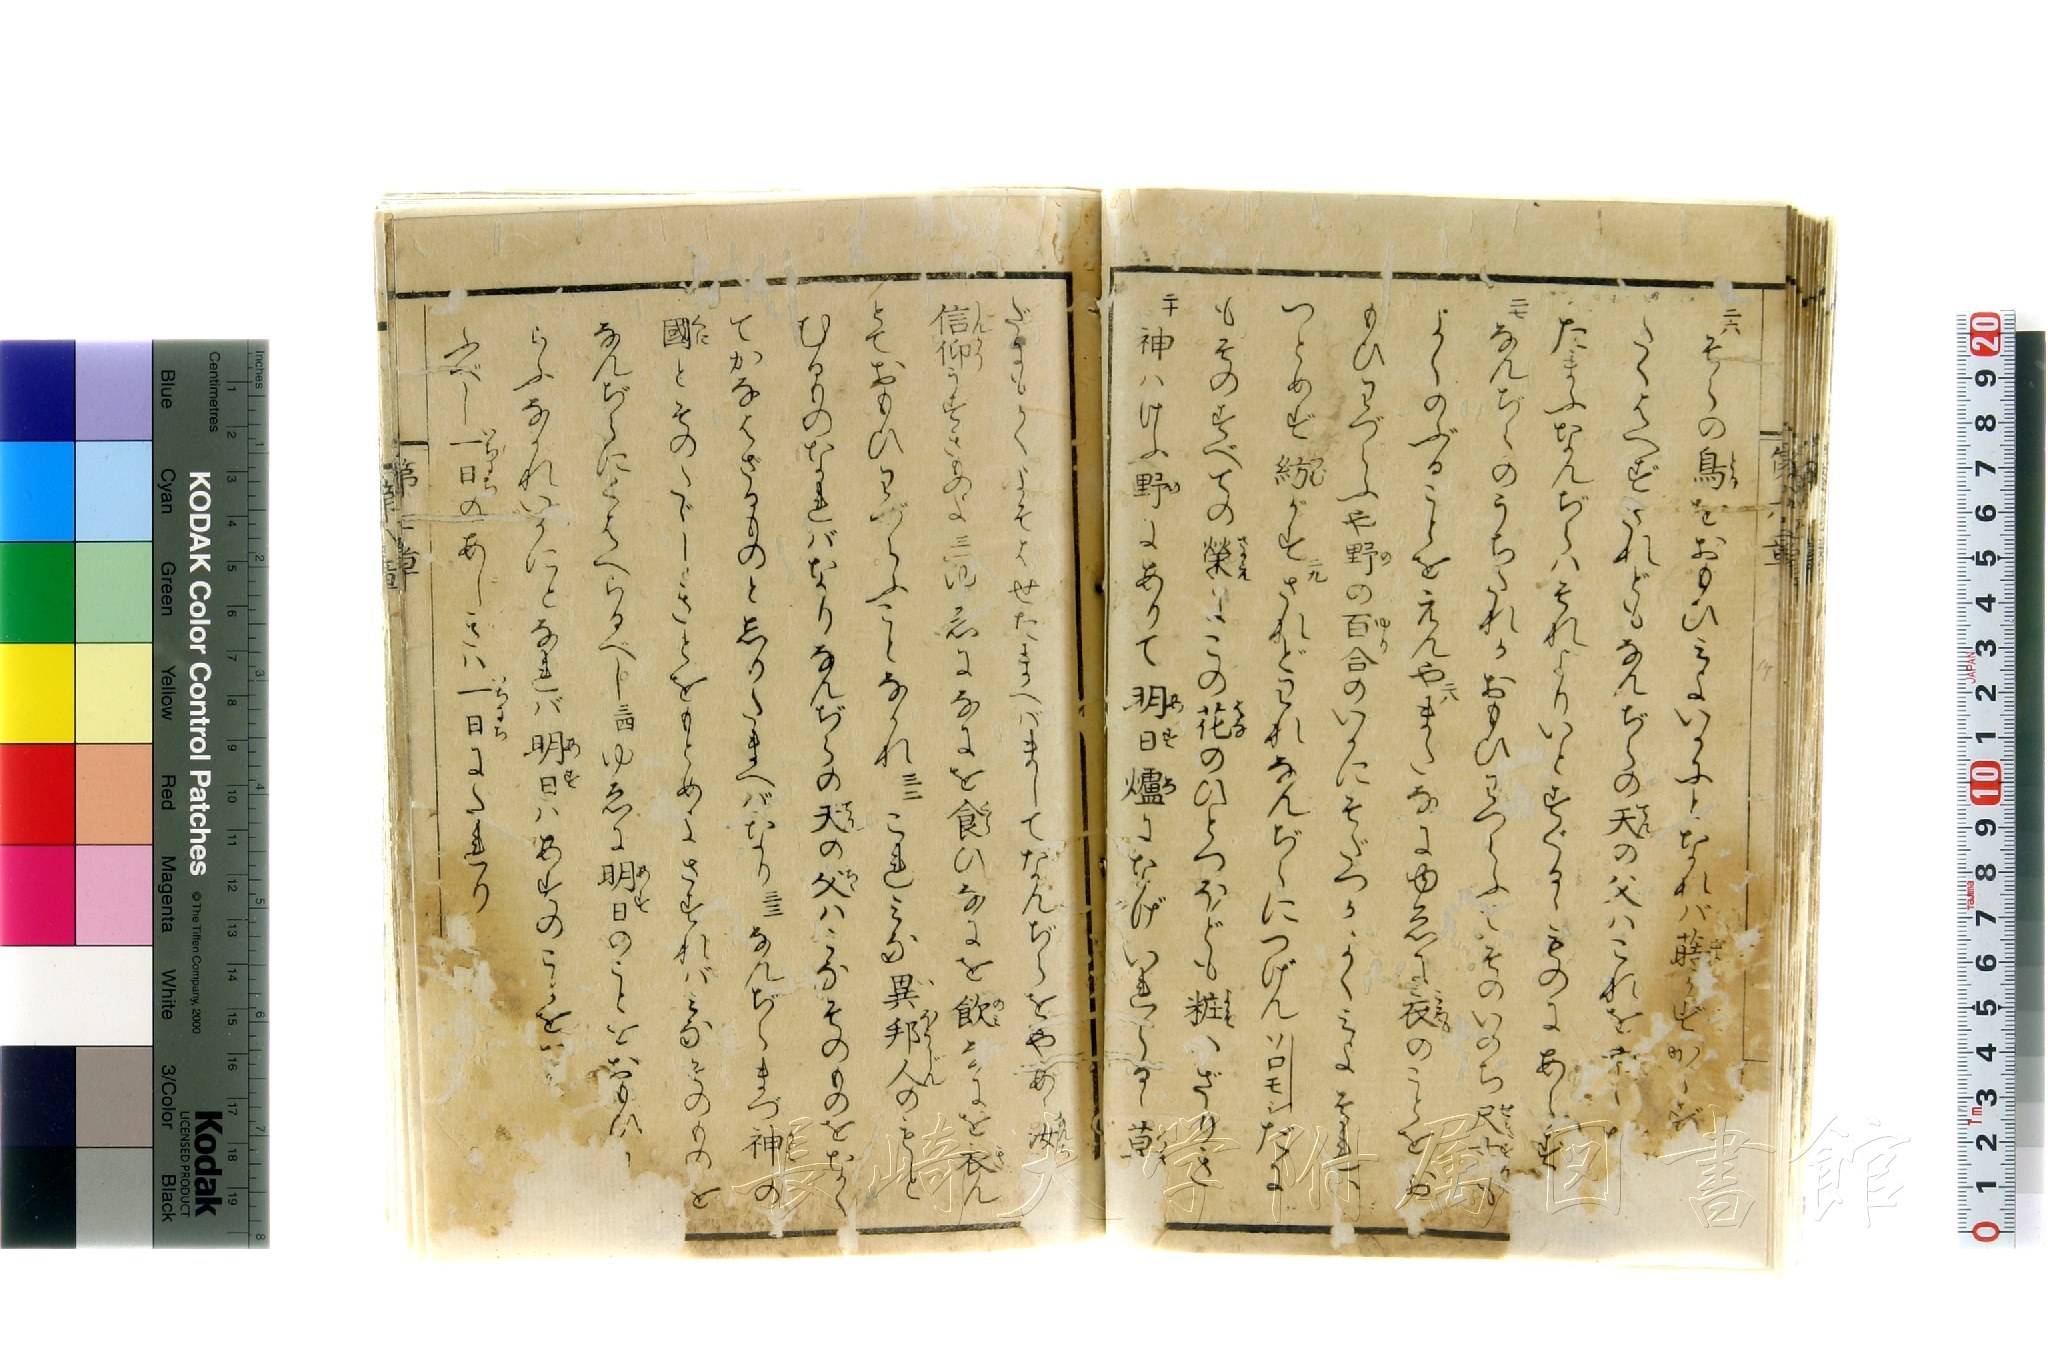 二六
そらの鳥をおもひみよいかんとなれバ蒔ず
たくはへずされどもなんぢらの天の父ハこれを
たまふなんぢらハそれよりいとすぐるゝものにあらず
二七
なんぢらのうちたれかおもひわづらふてそのいのち尺寸も
よくのぶることをえんや二八またなにゆゑに衣のことをお
もひわづらふや野の百合のいかにそだつかよくみよそれハ
つとめず紡がず二九されどわれなんぢらにつげんソロモンだに
もそのすべての榮にこの花のひとつほども粧ハざりき
三十
神ハけふ野にありて明日爐になげいれらるゝ草
だにもかくよそはせたまへバましてなんぢらをやあゝ汝
信仰うすきものよ三一ゆゑになにを食ひなにを飲なにを衣ん
とておもひわづらふことなかれ三二これみな異邦人のもと
むるものなれバなりなんぢらの天の父ハみなそのものをなく
てかなはざるものとしりたまへバなり三三なんぢらまづ神の
國とそのたゞしきとをもとめよさすれバみなそのものを
なんぢらにくはへらるべし三四ゆゑに明日のことをおもひハ
らふなかれいかにとなれバ明日ハあすのことを
ふべし一日のあしきハ一日にたれり
第六章
KODAK Color Control Patches
© The Tiffen Company, 2000
Kodak
LICENSED PRODUCT
Centimetres
Inches
Blue
Cyan
Green
Yellow
Red
Magenta
White
3/Color
Black
1 2 3 4 5 6 7 8 9 10 11 12 13 14 15 16 17 18 19
1 2 3 4 5 6 7 8
20 9 8 7 6 5 4 3 2 1 10 9 8 7 6 5 4 3 2 1 0
JAPAN
Tajima
長崎大学附属図書館